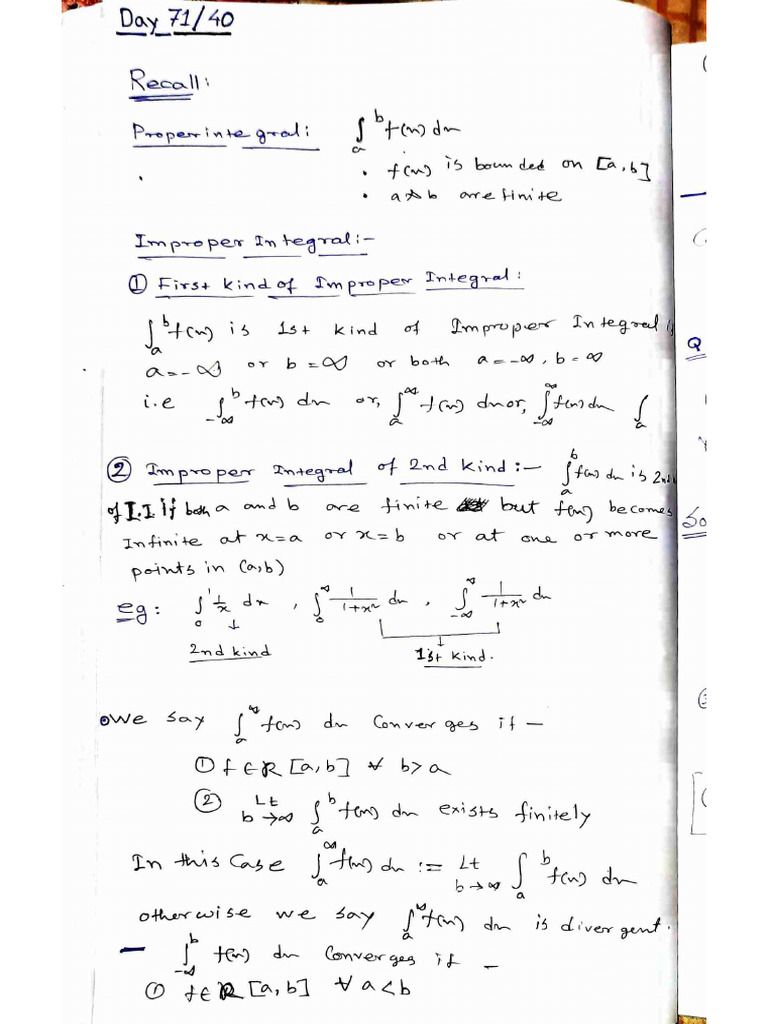 Day 71/40
Recall:
Proper integral: ∫_a^b f(x) dx
• f(x) is bounded on [a,b]
• a & b are finite
Improper Integral:-
① First kind of Improper Integral:
∫_a^b f(x) is 1st kind of Improper Integral if
a=-∞ or b=∞ or both a=-∞, b=∞
i.e ∫_{-∞}^b f(x) dx or, ∫_a^∞ f(x) dx or, ∫_{-∞}^∞ f(x) dx ∫_a
② Improper Integral of 2nd kind:- ∫_a^b f(x) dx is 2nd
of I.I if both a and b are finite but f(x) becomes
Infinite at x=a or x=b or at one or more
points in (a,b)
eg: ∫_0^1 1/x dx, ∫_0^∞ 1/(1+x²) dx, ∫_{-∞}^∞ 1/(1+x²) dx
↓ ↓
2nd kind 1st kind.
• We say ∫_a^∞ f(x) dx Converges if —
① f ∈ R [a,b] ∀ b>a
② Lt_{b→∞} ∫_a^b f(x) dx exists finitely
In this Case ∫_a^∞ f(x) dx := Lt_{b→∞} ∫_a^b f(x) dx
otherwise we say ∫_a^∞ f(x) dx is divergent.
— ∫_{-∞}^b f(x) dx Converges if —
① f ∈ R [a,b] ∀ a<b
Q